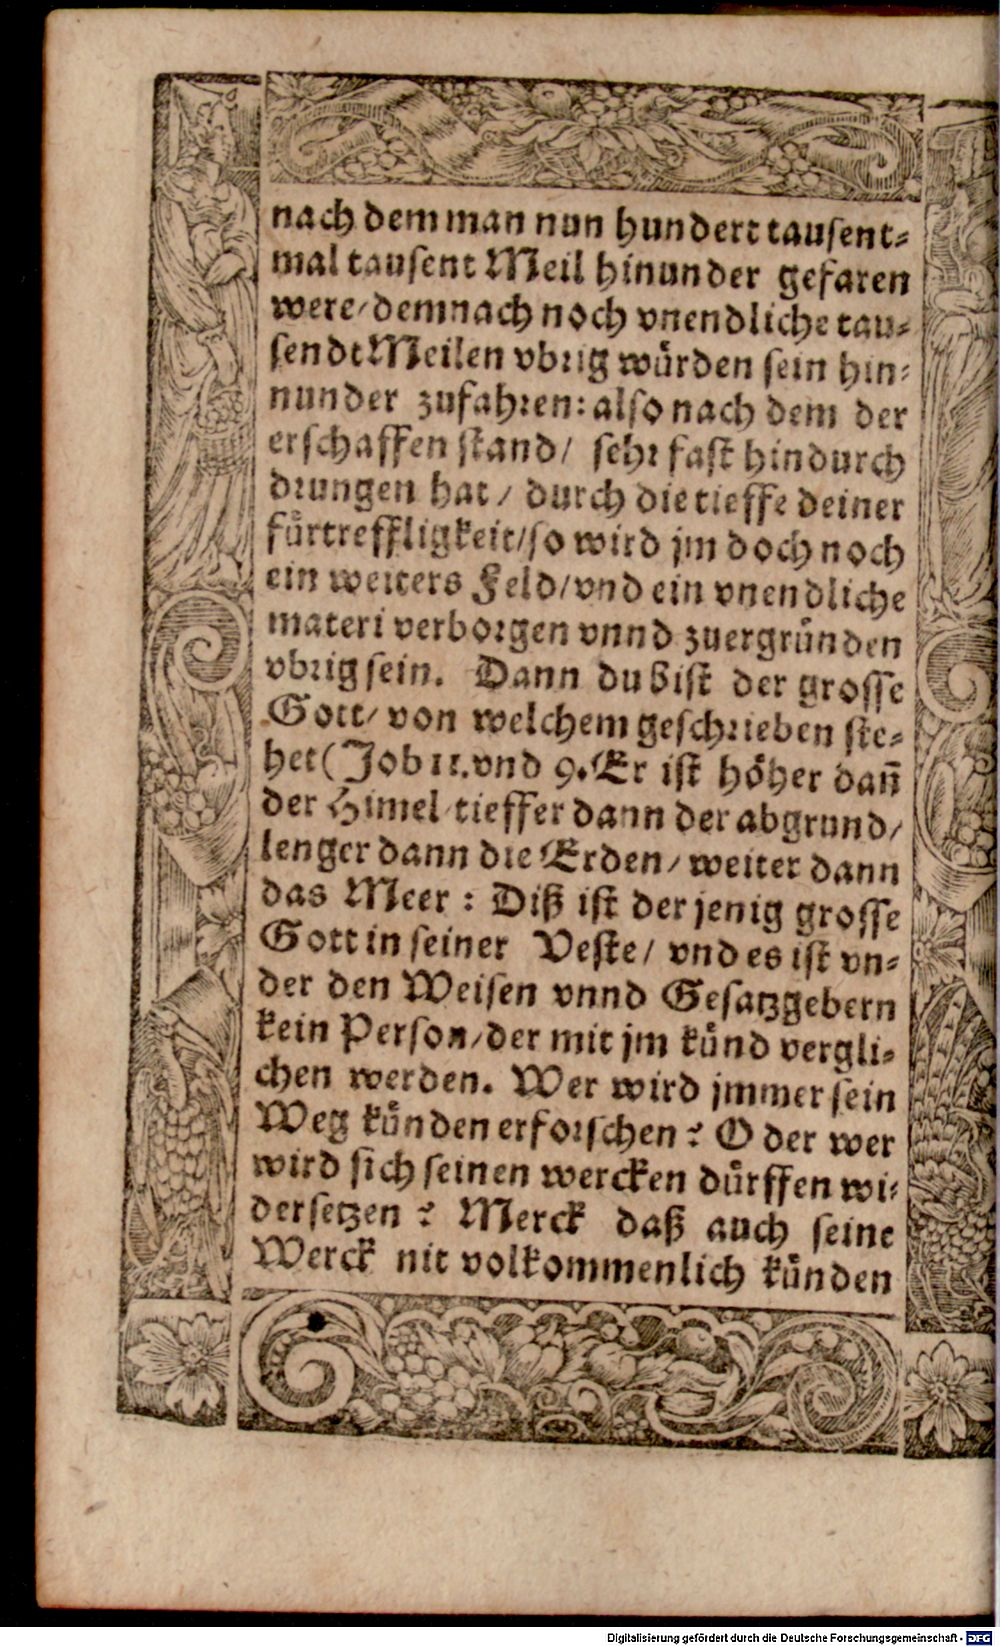 nach dem man nun hundert tausent-
mal tausent Meil hinunder gefaren
were/ demnach noch vnendliche tau-
sendt Meilen vbrig würden sein hin-
nunder zufahren: also nach dem der
erschaffen stand/ sehr fast hindurch
drungen hat/ durch die tieffe deiner
fürtreffligkeit/ so wird jm doch noch
ein weiters Feld/ vnd ein vnendliche
materi verborgen vnnd zuergründen
vbrig sein. Dann du bist der grosse
Gott/ von welchem geschrieben ste-
het (Job 11. vnd 9. Er ist höher dañ
der Himel/ tieffer dann der abgrund/
lenger dann die Erden/ weiter dann
das Meer: Diß ist der jenig grosse
Gott in seiner Veste/ vnd es ist vn-
der den Weisen vnnd Gesatzgebern
kein Person/ der mit jm künd vergli-
chen werden. Wer wird jmmer sein
Weg künden erforschen? O der wer
wird sich seinen wercken dürffen wi-
dersetzen? Merck daß auch seine
Werck nit volkommenlich künden
Digitalisierung gefördert durch die Deutsche Forschungsgemeinschaft - DFG